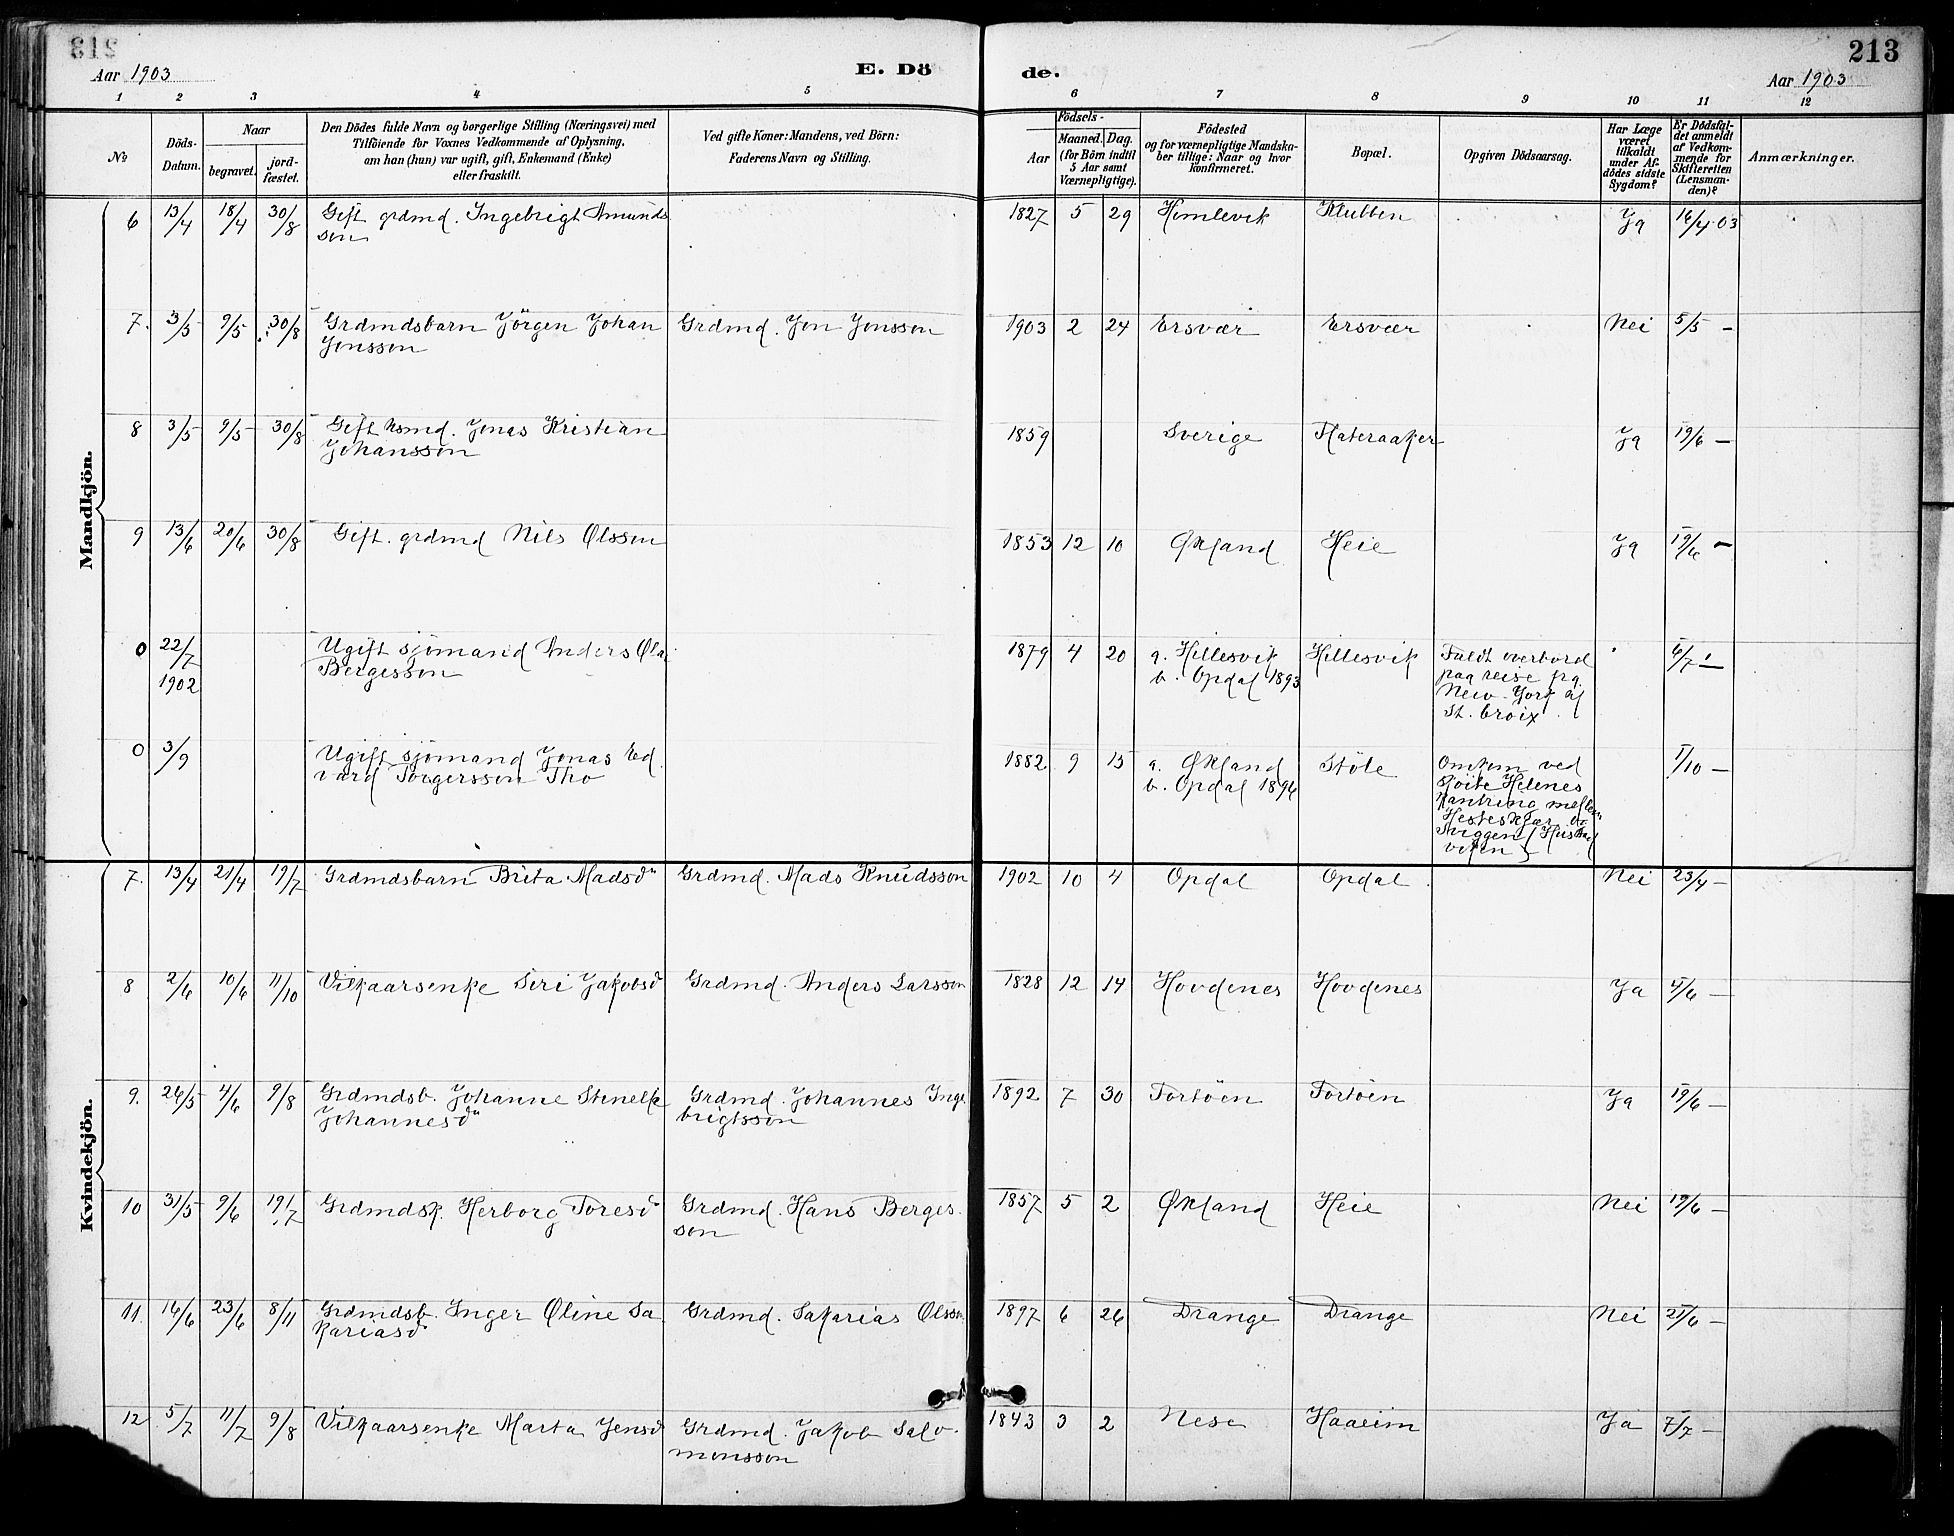 213
Aar 1903
E. Dö
de.
Aar 1903
1 2 3 4 5 6 7 8 9 10 11 12
No
Döds-Datum.
Naar
begravet.
jord-fæstet.
Den Dödes fulde Navn og borgerlige Stilling (Næringsvei) med
Tilföiende for Voxnes Vedkommende af Oplysning,
om han (hun) var ugift, gift, Enkemand (Enke)
eller fraskilt.
Ved gifte Koner: Mandens, ved Börn:
Faderens Navn og Stilling.
Födsels-
Aar
Maaned. Dag.
(for Börn indtil
5 Aar samt
Værnepligtige).
Födested
og for værnepligtige Mandska-
ber tillige: Naar og hvor
konfirmeret.
Bopæl.
Opgiven Dödsaarsag.
Har Læge
været
tilkaldt
under Af-
dödes sidste
Sygdom?
Er Dödsfal-
det anmeldt
af Vedkom-
mende for
Skifteretten
(Lensman-
den)?
Anmærkninger.
Mandkjön.
6 13/4 18/4 30/8 Gift grdmd. Ingebrigt Amunds 1827 5 29 Hemlevik Klubben Ja 16/4 03
son
7. 3/5 9/5 30/8 Grdmdsbarn Jörgen Johan Grdmd. Jon Jonsson 1903 2 24 Ersvær Ersvær Nei 5/5 –
Jonsson
8 3/5 9/5 30/8 Gift hsmd. Jonas Kristian 1859 Sverige Flateraaker Ja 19/6 –
Johansson
9 13/6 20/6 30/8 Gift. grdmd Nils Olsson 1853 12 10 Økland Heie Ja 19/6 –
0 22/7 Ugift sjömand Anders Ola 1879 4 20 a. Hillesvik Hillesvik Faldt overbord 6/7 –
1902 Bergesson b. Opdal 1893 paa reise fra
New-York af
St. Croix.
0 3/9 Ugift sjömand Jonas Ed 1882 9 15 a. Økland Stöle Omkom ved 1/10 –
vard Torgersson Tho b. Opdal 1896 Sköite Helenes
Kantring mellem
Hesteskjær og
(Hustad
Kvindekjön.
7. 13/4 21/4 19/7 Grdmdsbarn Brita Madsd Grdmd. Mads Knudsson 1902 10 4 Opdal Opdal Nei 23/4 –
8 2/6 10/6 11/10 Vilkaarsenke Siri Jakobsd Grdmd. Anders Larsson 1828 12 14 Hovdenes Hovdenes Ja 4/6 –
9. 26/5 4/6 9/8 Grdmdsb. Johanne Grdmd. Johannes Inge 1892 7 30 Fortöen Fortöen Ja 19/6 –
Johannesd brigtsson
10 31/5 9/6 19/7 Grdmdsk. Herborg Toresd Grdmd. Hans Berges 1857 5 2 Økland Heie Nei 19/6 –
son
11. 16/6 23/6 8/11 Grdmdsb. Inger Oline Sa Grdmd. Sakarias Olsson 1897 6 26 Drange Drange Nei 25/6 –
kariasd
12 5/7 11/7 9/8 Vilkaarsenke Marta Jensd Grdmd. Jakob Salo- 1843 3 2 Nese Haaeim Ja 7/7 –
monsson